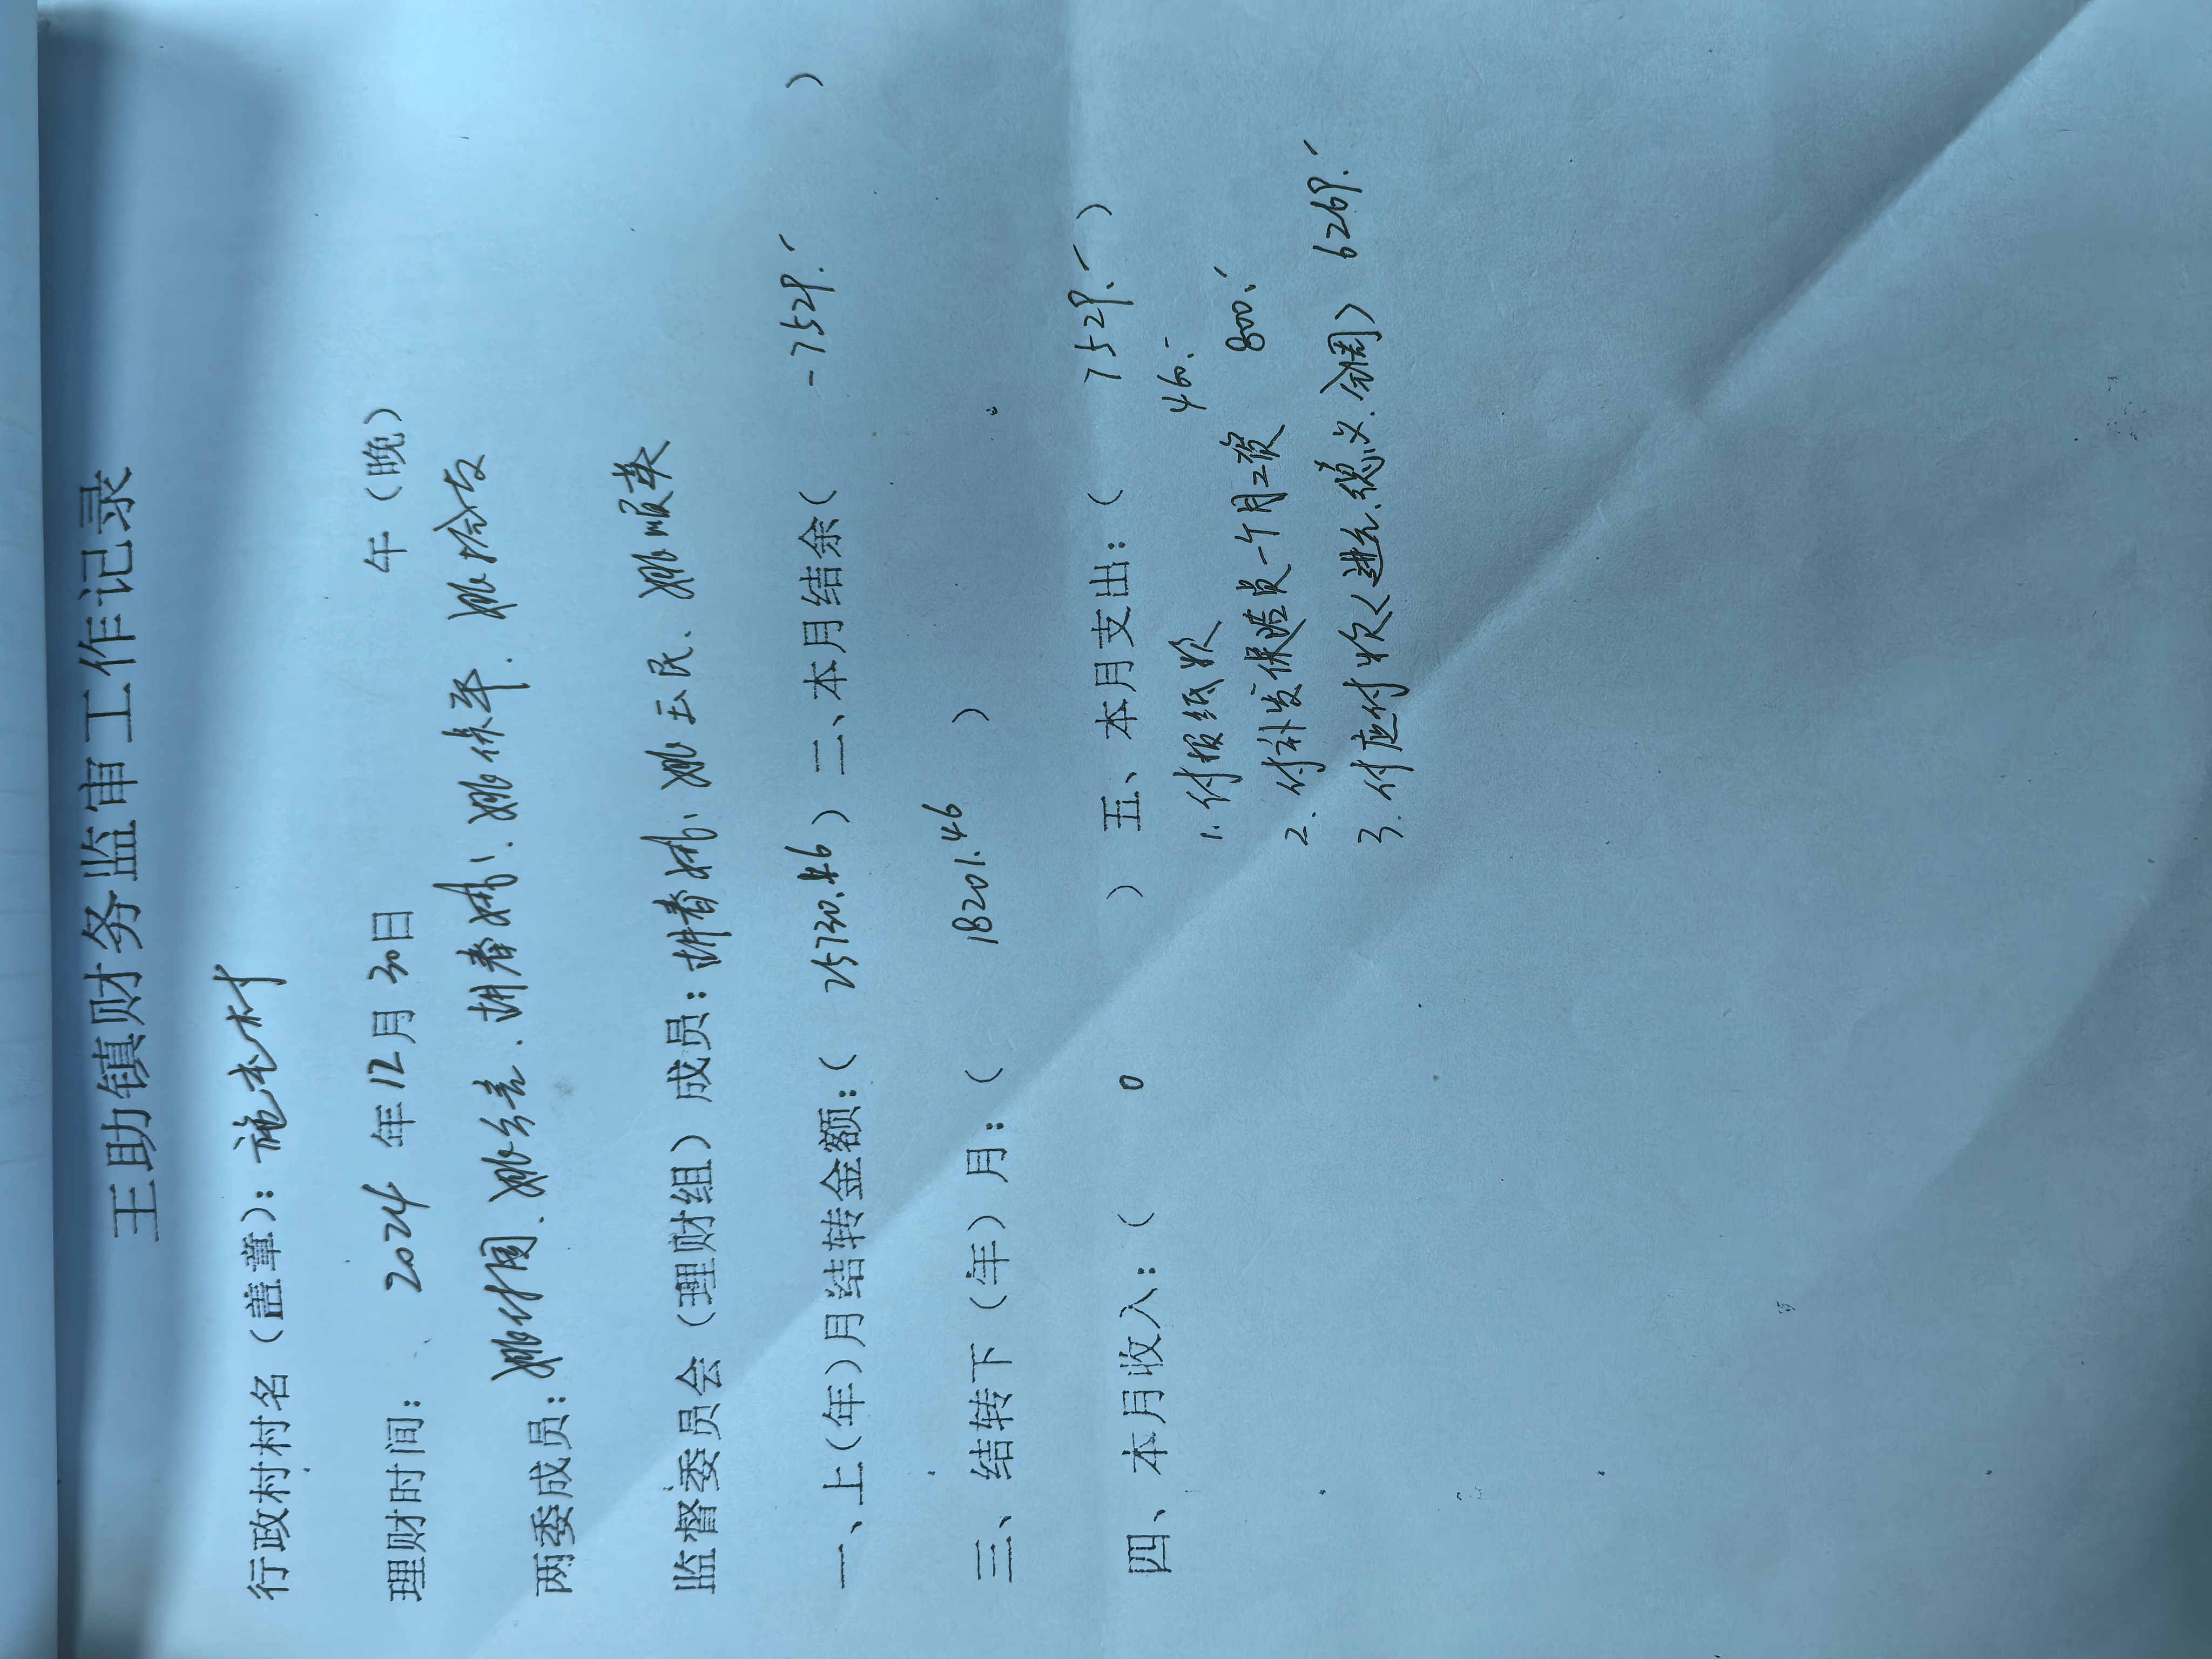 王助镇财务监审工作记录
行政村村名（盖章）：施本村
理财时间： 2024 年 12 月 30 日 午（晚）
两委成员：姚付国、姚、胡春娣、姚保平、姚
监督委员会（理财组）成员：胡春娣、姚玉民、姚顺英
一、上（年）月结转金额：（ 25730.46 ）二、本月结余（ -7529.- ）
三、结转下（年）月：（ 18201.46 ）
四、本月收入：（ 0 ） 五、本月支出：（ 7529.- ）
1.付报纸款 460.-
2.付补发保洁员一个月工资 800.-
3.付应付款<进元.德义.> 6269.-